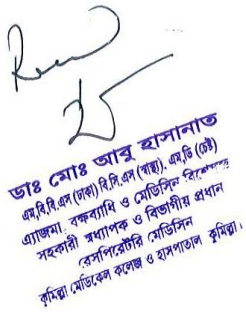 ডাঃ মোঃ আবু হাসানাত
এম,বি,বি,এস (ঢাকা) বি,সি,এস (স্বাস্থ্য), এম,ডি (চেষ্ট)
এ্যাজমা, বক্ষব্যাধি ও মেডিসিন বিশেষজ্ঞ
সহকারী অধ্যাপক ও বিভাগীয় প্রধান
রেসপিরেটরি মেডিসিন
কুমিল্লা মেডিকেল কলেজ ও হাসপাতাল কুমিল্লা।